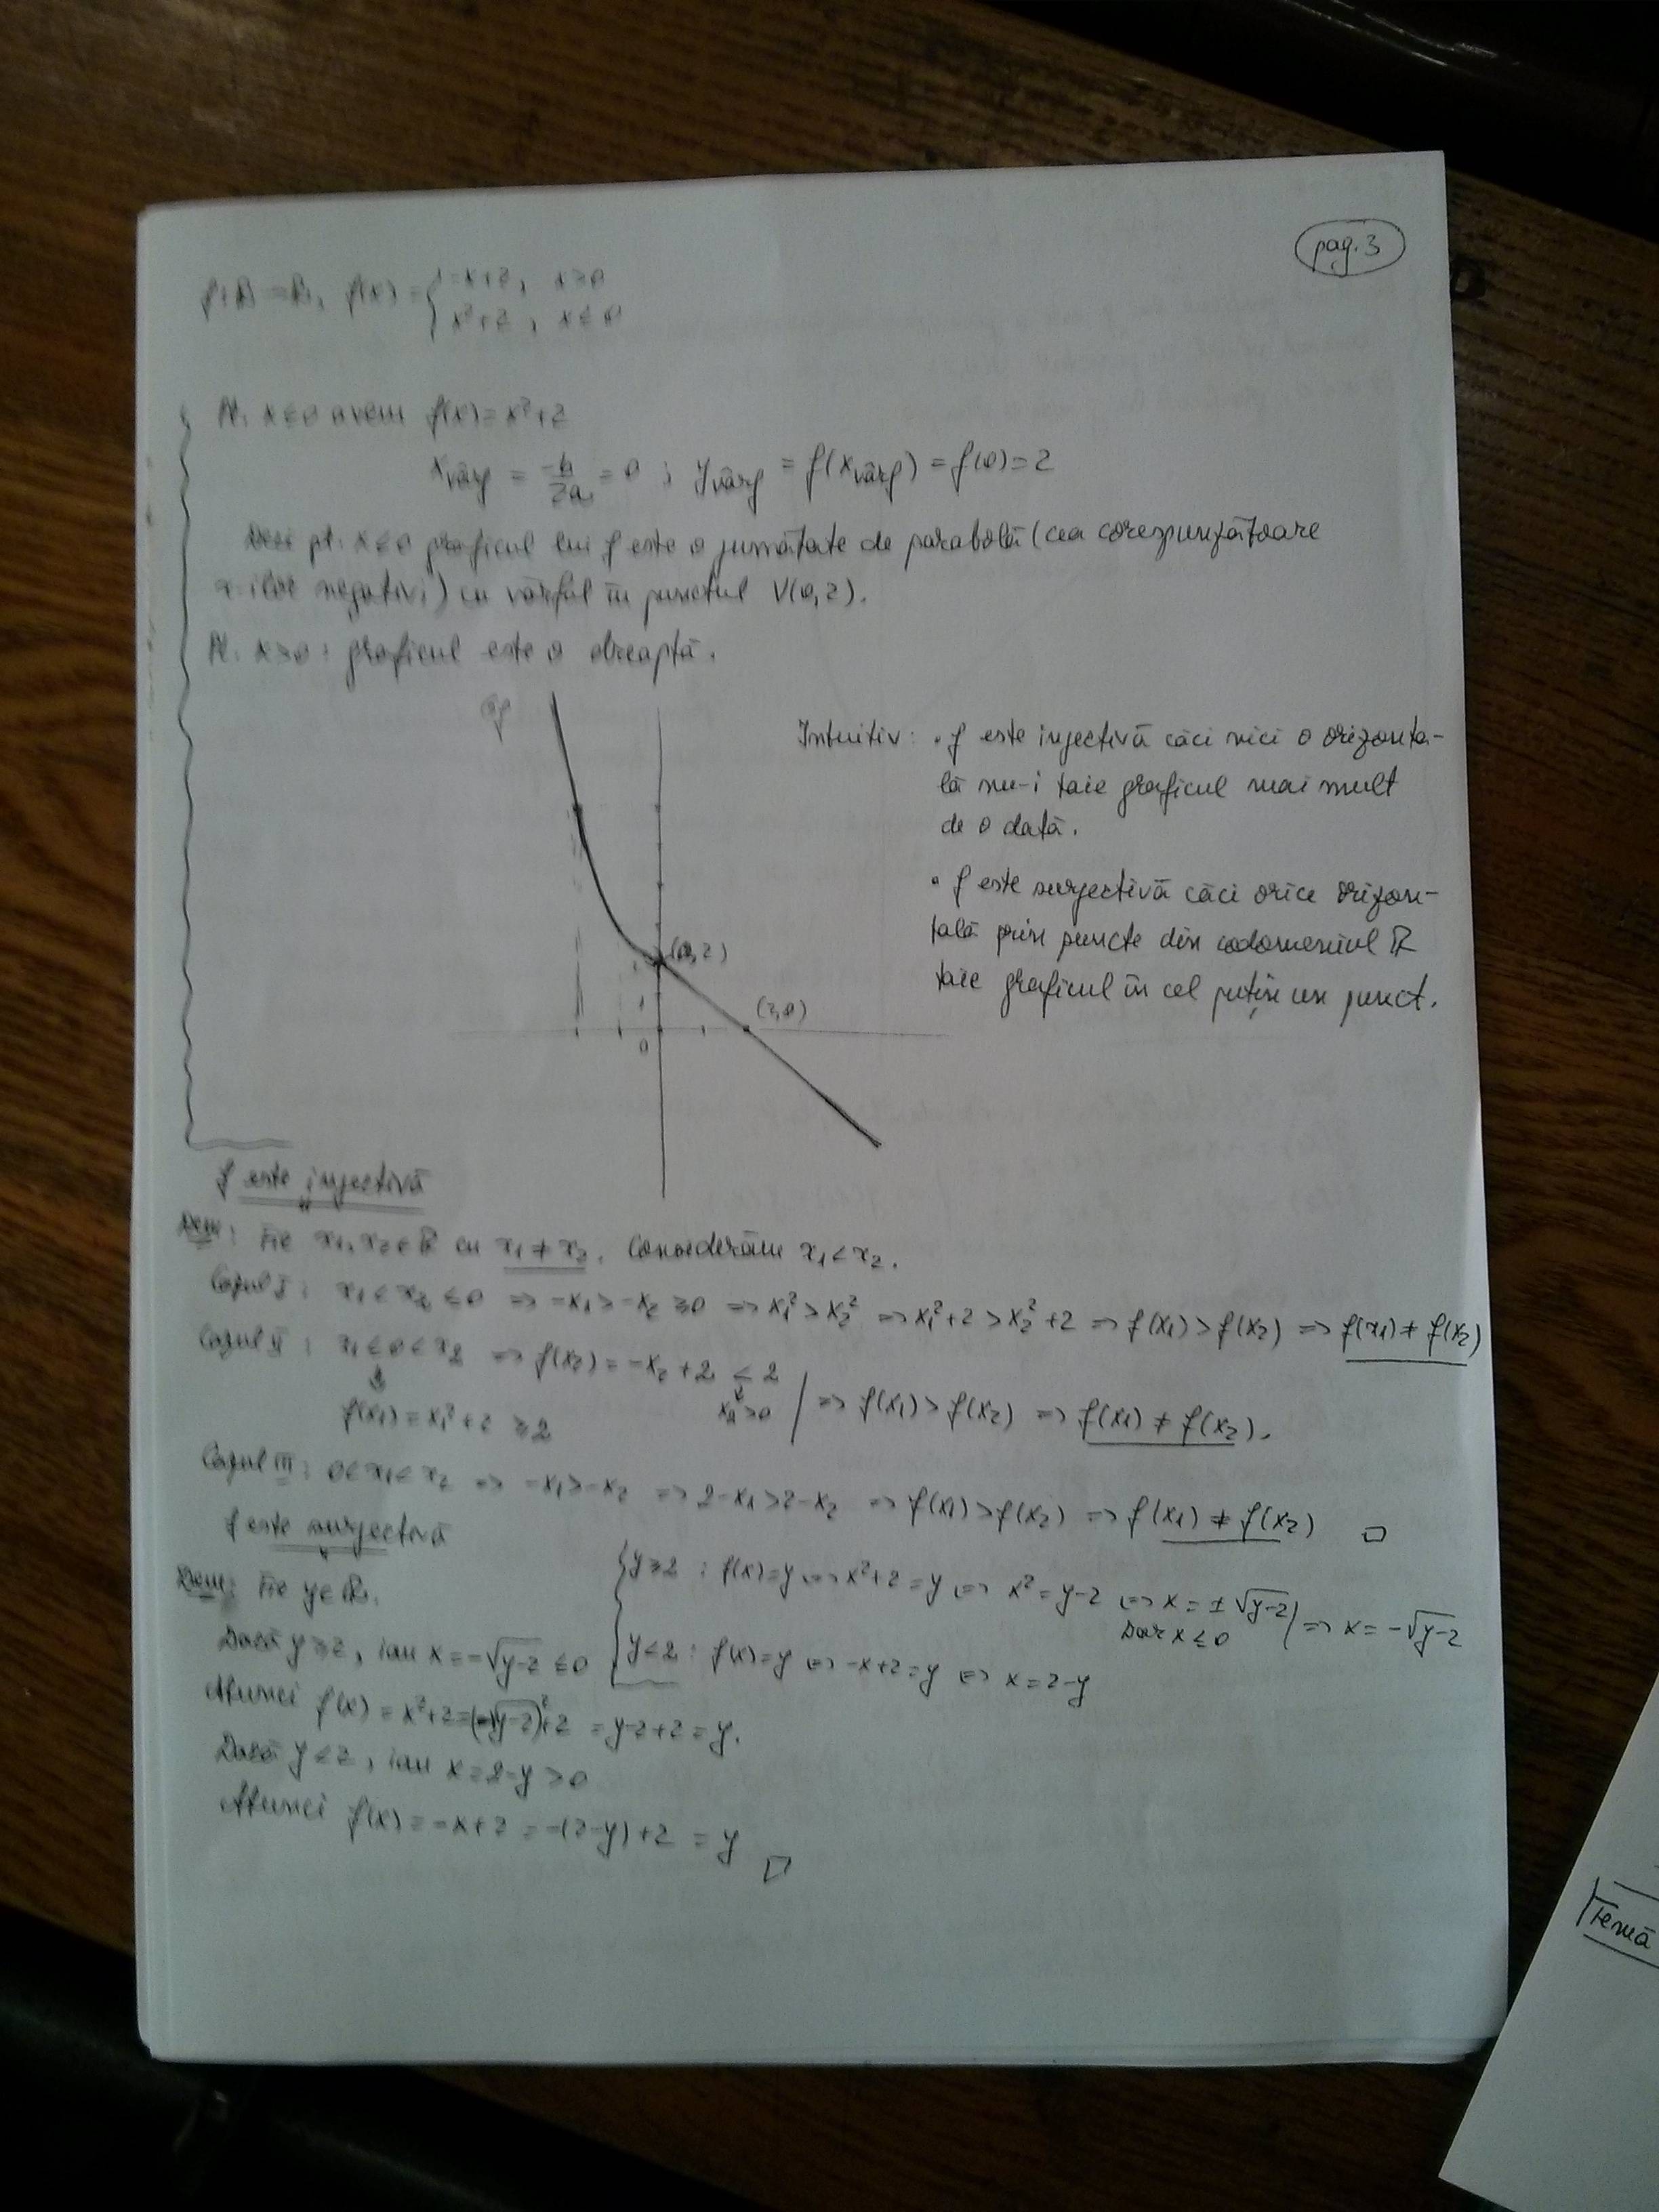 pag. 3
f: ℝ → ℝ, f(x) = { -x+2, x>0
x²+2, x≤0
Pt. x≤0 avem f(x) = x²+2
x_vârf = -b/2a = 0 ; y_vârf = f(x_vârf) = f(0) = 2
Deci pt. x≤0 graficul lui f este o jumătate de parabolă (cea corespunzătoare
x-ilor negativi) cu vârful în punctul V(0,2).
Pt. x>0 : graficul este o dreaptă.
Gf
Intuitiv: • f este injectivă căci nici o orizonta-
lă nu-i taie graficul mai mult
de o dată.
• f este surjectivă căci orice orizon-
tală prin puncte din codomeniul ℝ
taie graficul în cel puțin un punct.
(0,2)
(2,0)
0
f este injectivă
Dem: Fie x₁, x₂ ∈ ℝ cu x₁ ≠ x₂. Considerăm x₁ < x₂.
Cazul I: x₁ < x₂ ≤ 0 => -x₁ > -x₂ ≥ 0 => x₁² > x₂² => x₁²+2 > x₂²+2 => f(x₁) > f(x₂) => f(x₁) ≠ f(x₂)
Cazul II: x₁ ≤ 0 < x₂ => f(x₂) = -x₂ + 2 < 2
⇓
x₂>0
f(x₁) = x₁²+2 ≥ 2 / => f(x₁) > f(x₂) => f(x₁) ≠ f(x₂).
Cazul III: 0 < x₁ < x₂ => -x₁ > -x₂ => 2-x₁ > 2-x₂ => f(x₁) > f(x₂) => f(x₁) ≠ f(x₂) □
f este surjectivă
Dem: Fie y ∈ ℝ.
{ y≥2 : f(x)=y <=> x²+2=y <=> x²=y-2 <=> x = ±√(y-2) / => x = -√(y-2)
Dar x≤0
y<2 : f(x)=y <=> -x+2=y <=> x=2-y
Dacă y≥2, iau x = -√(y-2) ≤ 0
Atunci f(x) = x²+2 = (-√(y-2))²+2 = y-2+2 = y.
Dacă y<2, iau x = 2-y > 0
Atunci f(x) = -x+2 = -(2-y)+2 = y □
Temă